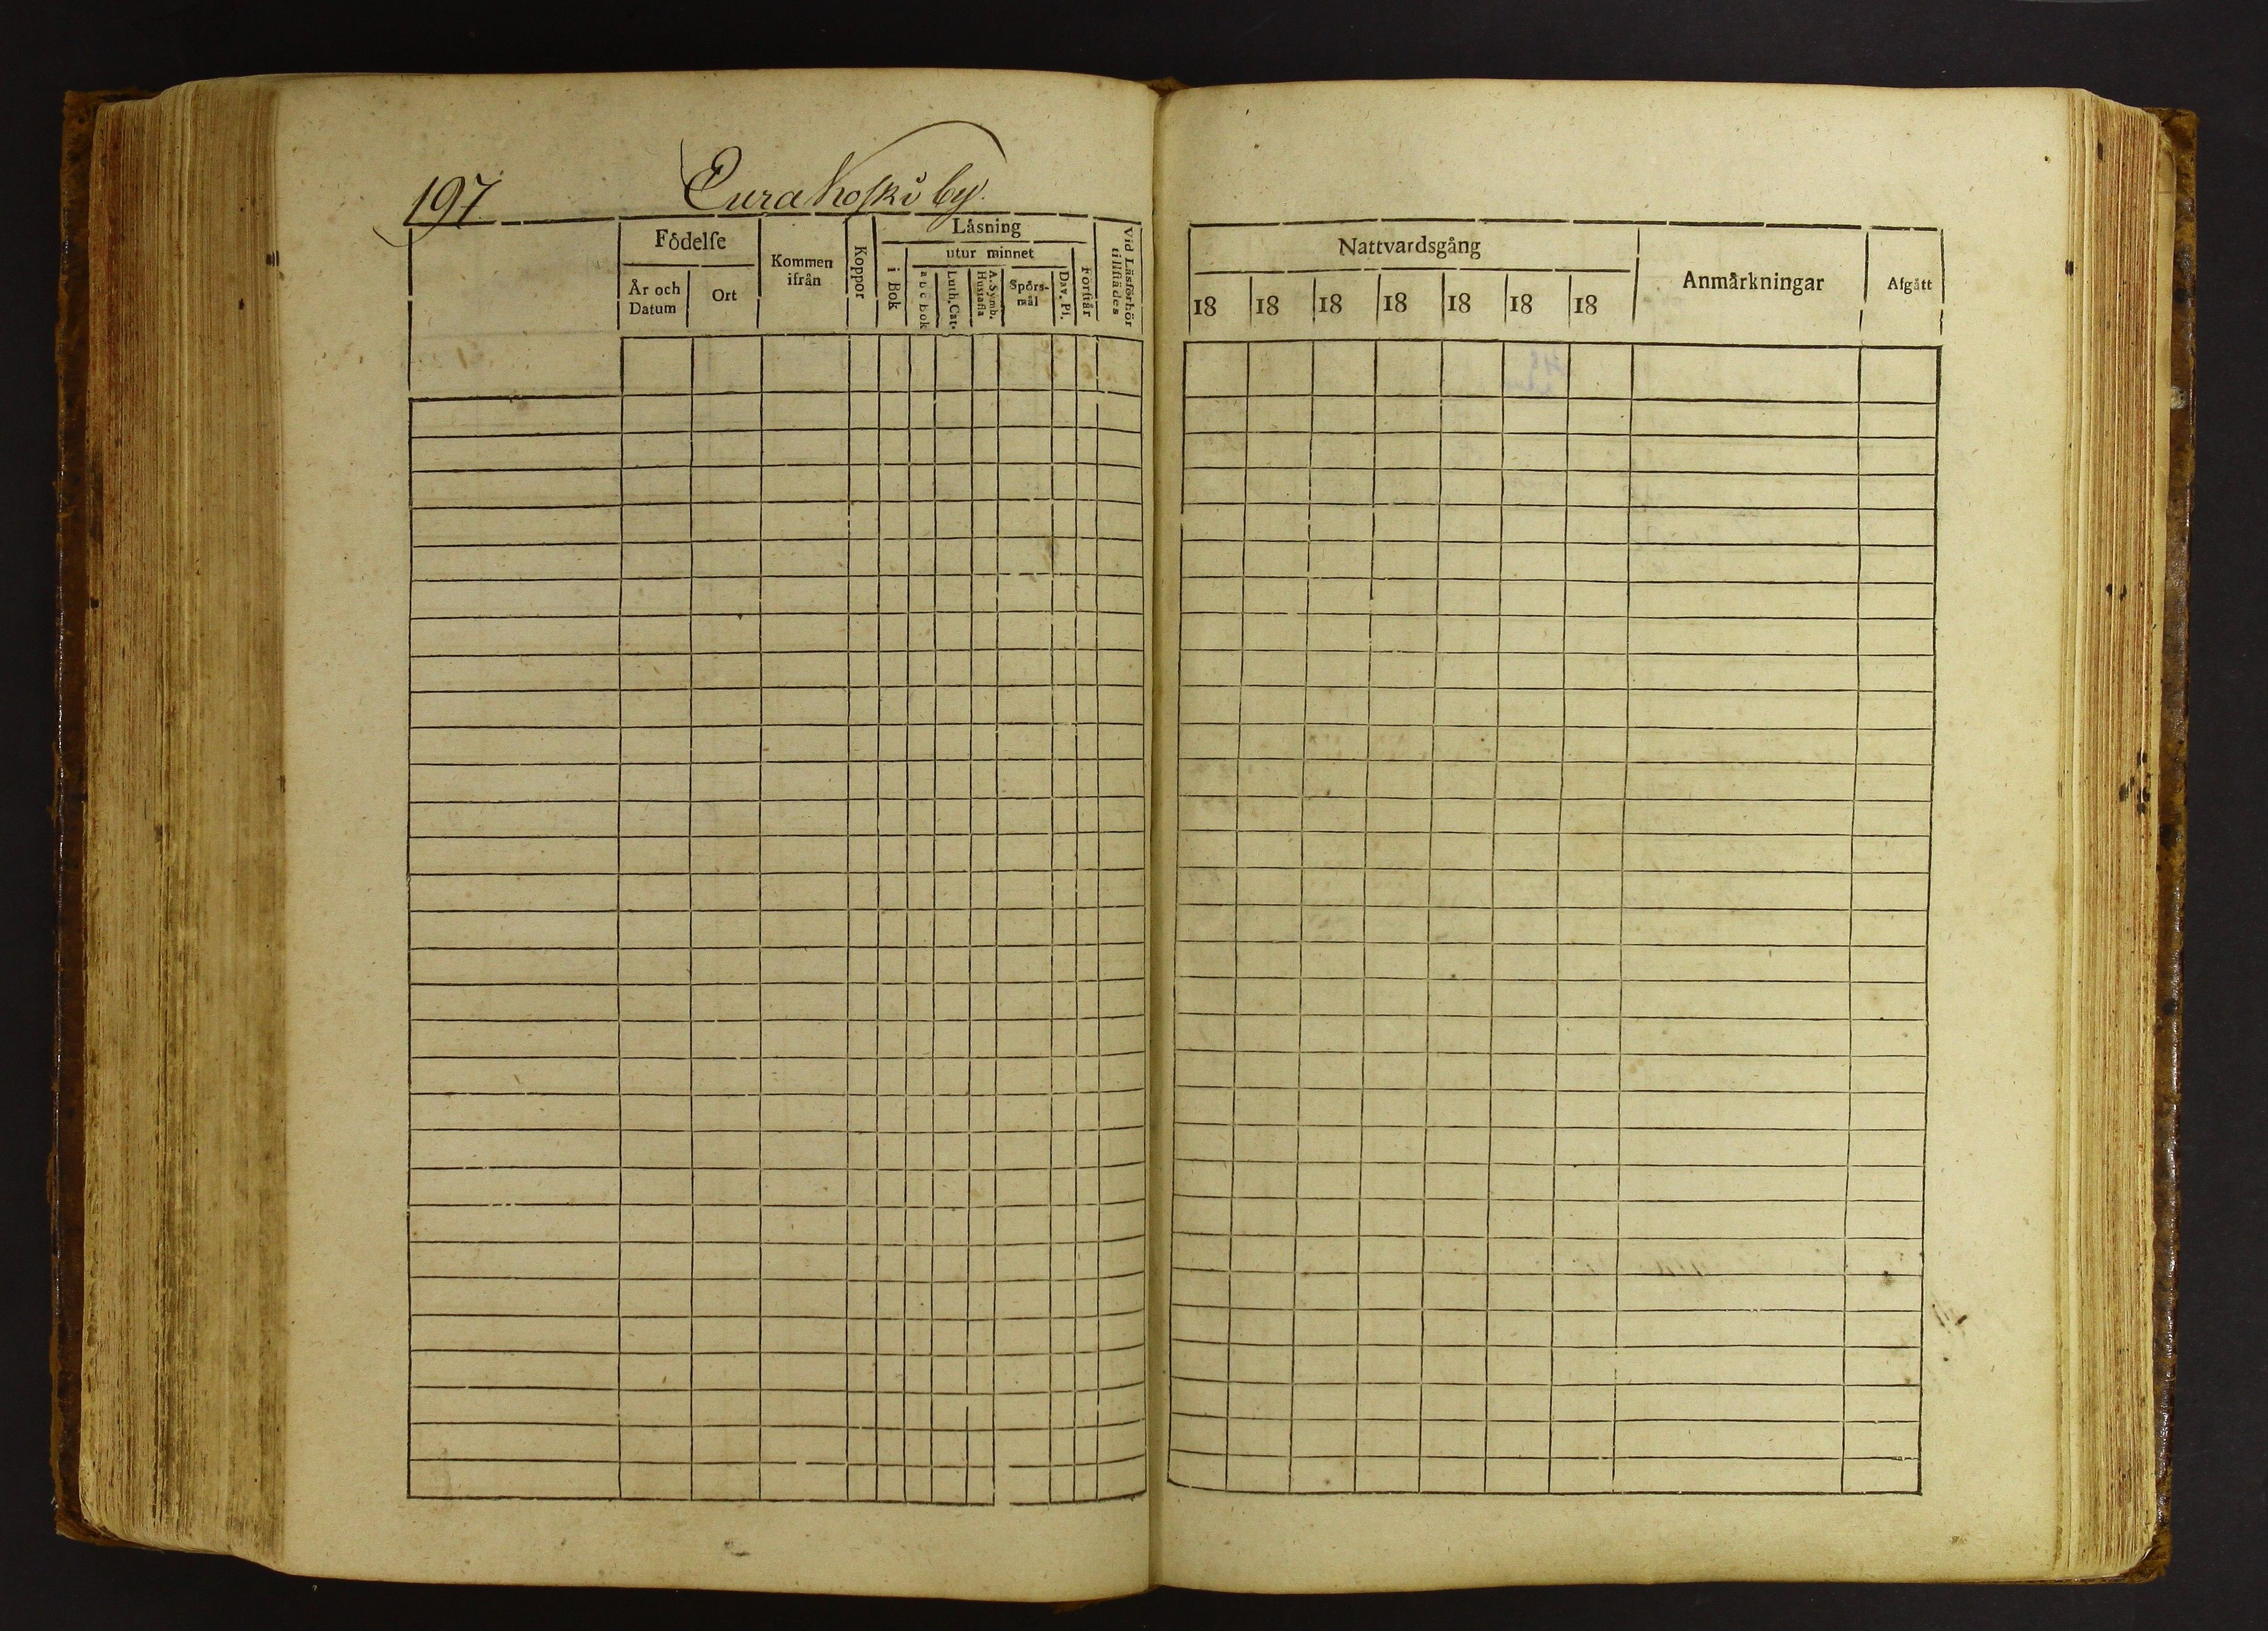 197 Eurakoski by
Födelse
År och Datum
Ort
Kommen ifrån
Koppor
Läsning
i Bok
utur minnet
a b c bok
Luth. Cat.
A. Symb. Hustafla
Spörsmål
Dav. Ps.
Förstår
Vid Läsförhör tillstädes
Nattvardsgång
18 18 18 18 18 18 18
Anmärkningar
Afgått